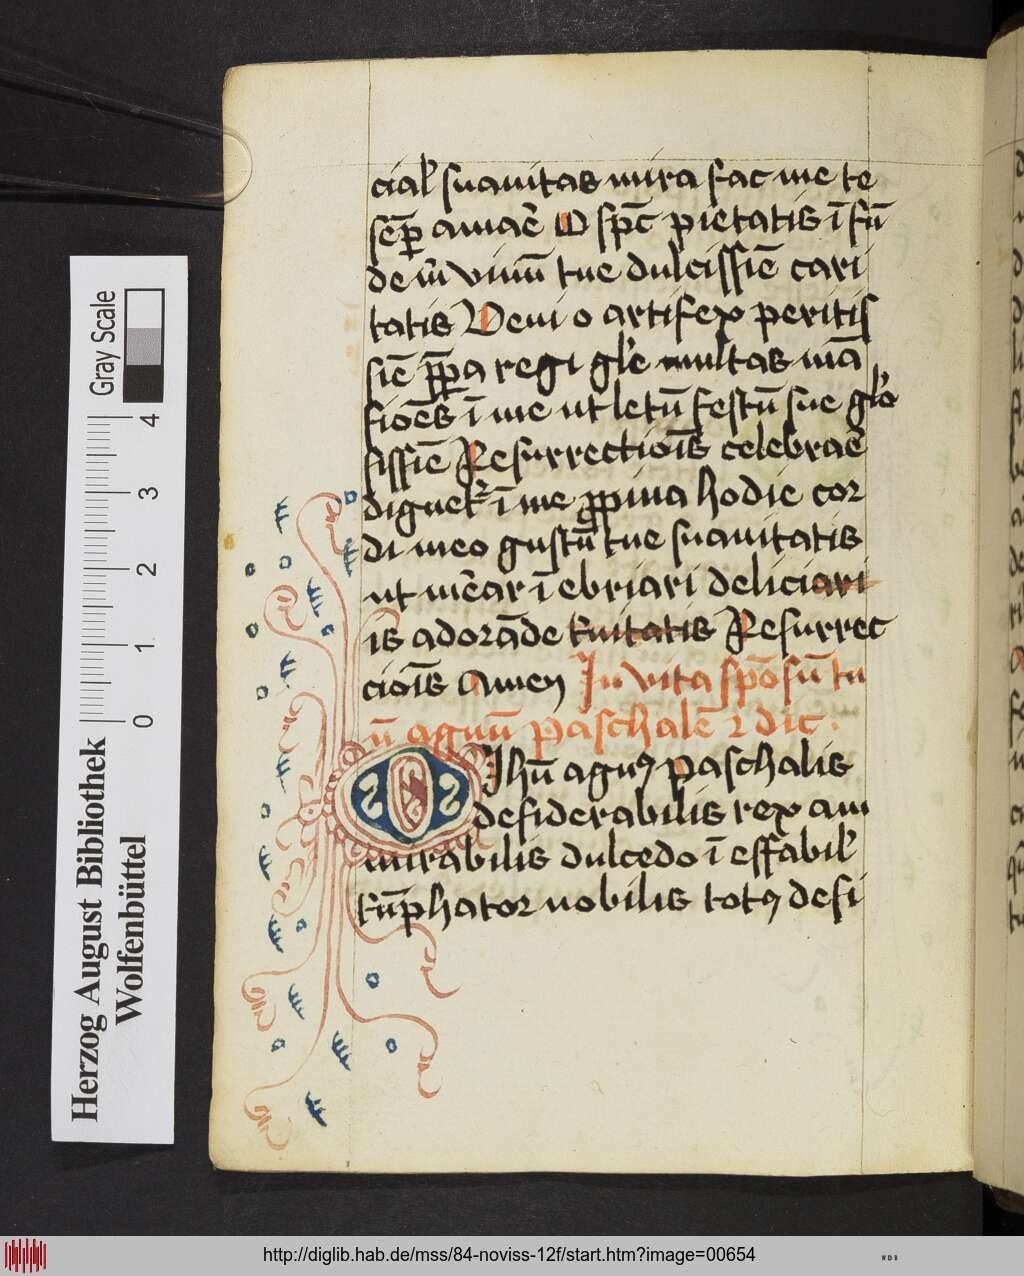 cial' suauitas mira fac me te
sēp̄ amaē O spc̄ pietatis īfū
de m̄ vinū tue dulcissīe cari
tatis Veni o artifex peritis
sīe p̄pa regi gl'e multas mā
sioēs ī me ut letū festū sue gl'o
sissīe Resurrectiōis celebraē
ī me hodie cor
di meo gustū tue suauitatis
ut mēar ī ebriari deliciari
is adorāde tūitatis Resurrec
ciōis Amen Inuita spōsū tu
ū agnū paschalē ⁊ dic.
O Ihū agnꝰ paschalis
desiderabilis rex am
mirabilis dulcedo ī effabil'
tūphator nobilis totꝰ desi
Gray Scale
4
3
2
1
0
Herzog August Bibliothek
Wolfenbüttel
http://diglib.hab.de/mss/84-noviss-12f/start.htm?image=00654